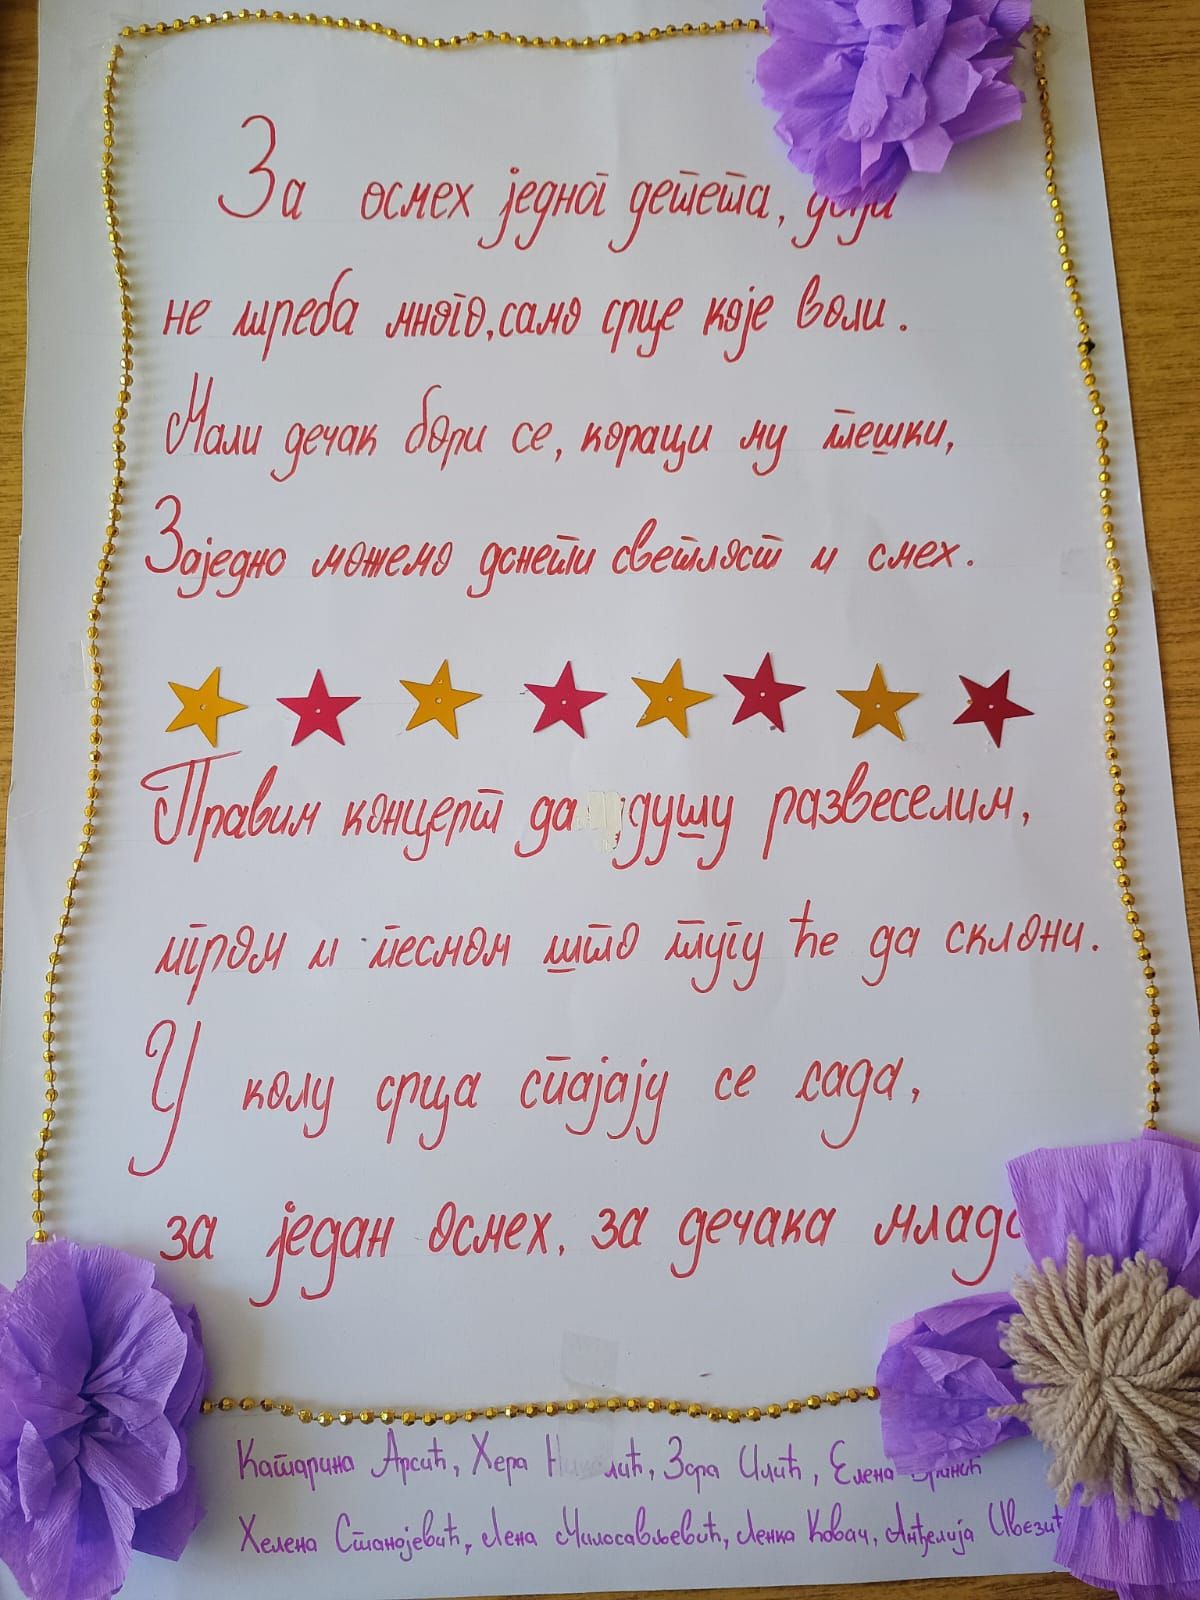 За осмех једног детета,
не треба много, само срце које воли.
Мали дечак бори се, кораци му тешки,
Заједно можемо донети светлост и смех.
Правим концерт да душу развеселим,
игром и песмом што тугу ће да склони.
У колу срца спајају се сада,
за један осмех, за дечака
Катарина Арсић, Хера Зора Илић, Елена
Хелена Станојевић, Лена Милосављевић, Ленка Ковач, Анђелија